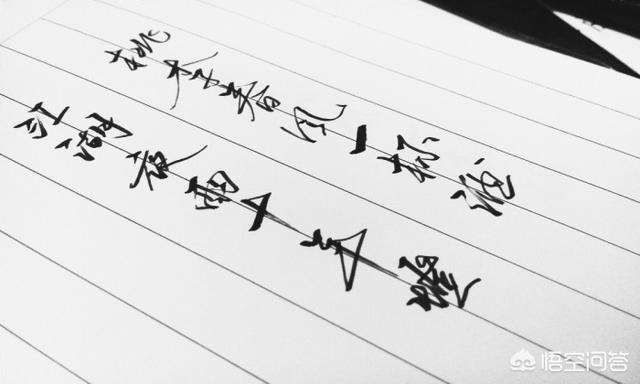 桃李春风一杯酒
江湖夜雨十年灯
悟空问答